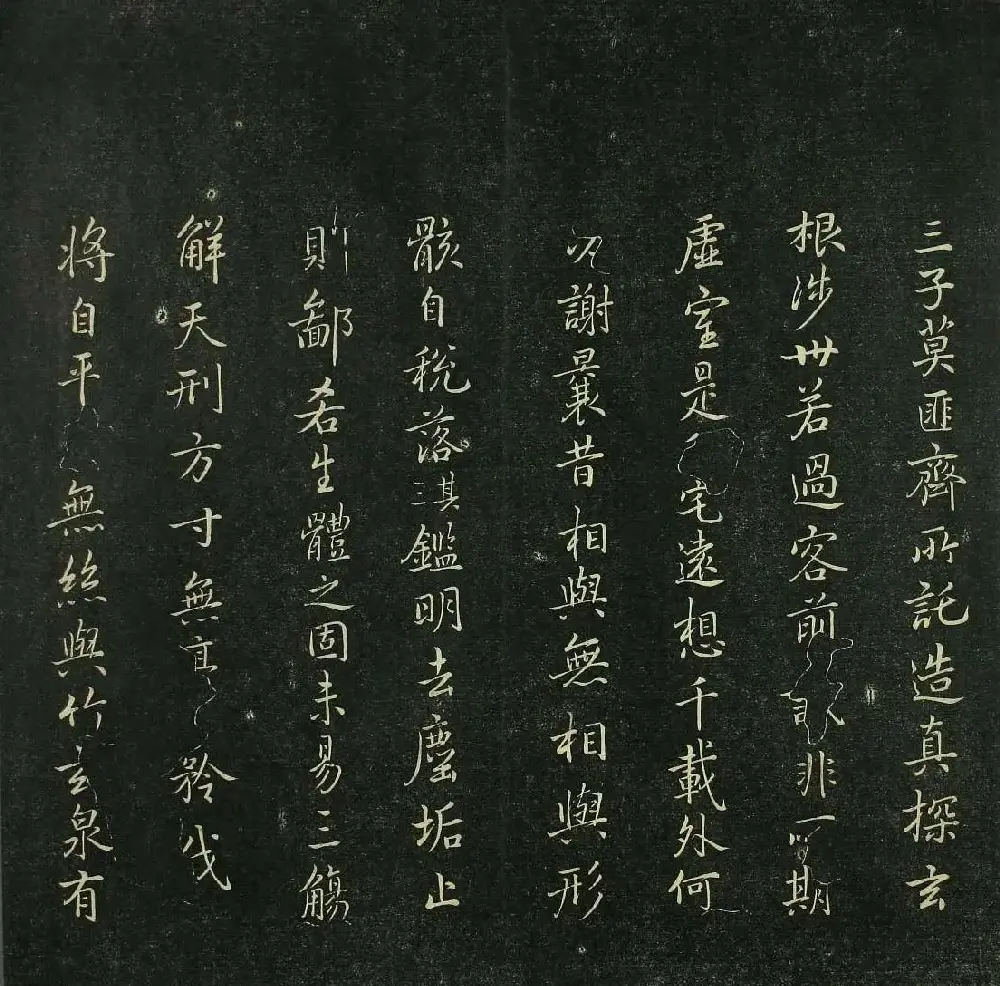 三子莫匪齊所託造真探玄
根涉世若過客前非期
虛室是宅遠想千載外何
謝曩昔相與無相與形
骸自稅落其三鑑明去塵垢止
則鄙吝生體之固未易三觴
解天刑方寸無矜伐
將自平無絲與竹玄泉有